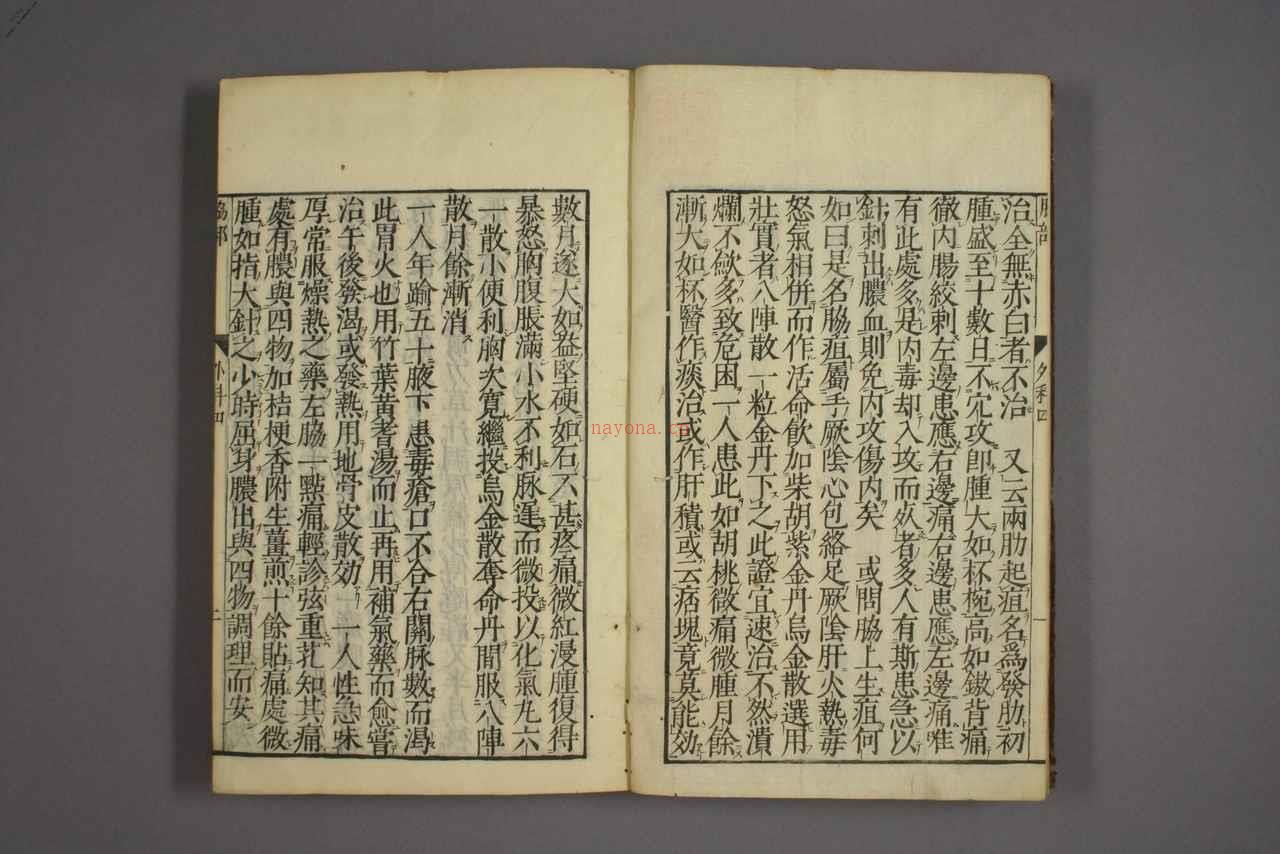 脇部
外科四
一
治全無赤白者不治　又云兩肋起疽名爲發肋初
腫盛至十數日不宂攻即腫大如杯椀高如鏃背痛
徹內腸絞刺左邊患應右邊痛右邊患應左邊痛唯
有此處多是內毒却入攻而效者多人有斯患急以
針刺出膿血則免內攻傷內矣　或問脇上生疽何
如曰是名脇疽屬手厥陰心包絡足厥陰肝火熱毒
怒氣相併而作活命飮加柴胡紫金丹烏金散選用
壯實者八陣散一粒金丹下之此證宜速治不然潰
爛不歛多致危困一人患此如胡桃微痛微腫月餘
漸大如杯醫作痰治或作肝積或云痞塊竟莫能効
數月遂大如盌堅硬如石不甚疼痛微紅漫腫復得
暴怒胸腹脹滿小水不利脉遲而微投以化氣丸六
一散小便利胸次寬繼投烏金散奪命丹間服八陣
散月餘漸消
一人年踰五十腋下患毒瘡口不合右關脉數而渴
此胃火也用竹葉黃耆湯而止再用補氣藥而愈嘗
治午後發渴或發熱用地骨皮散効　一人性急味
厚常服燥熱之藥左脇一點痛輕診弦重芤知其痛
處有膿與四物加桔梗香附生薑煎十餘貼痛處微
腫如指大針之少時屈身膿出與四物調理而安
脇部
外科四
nayona.cn